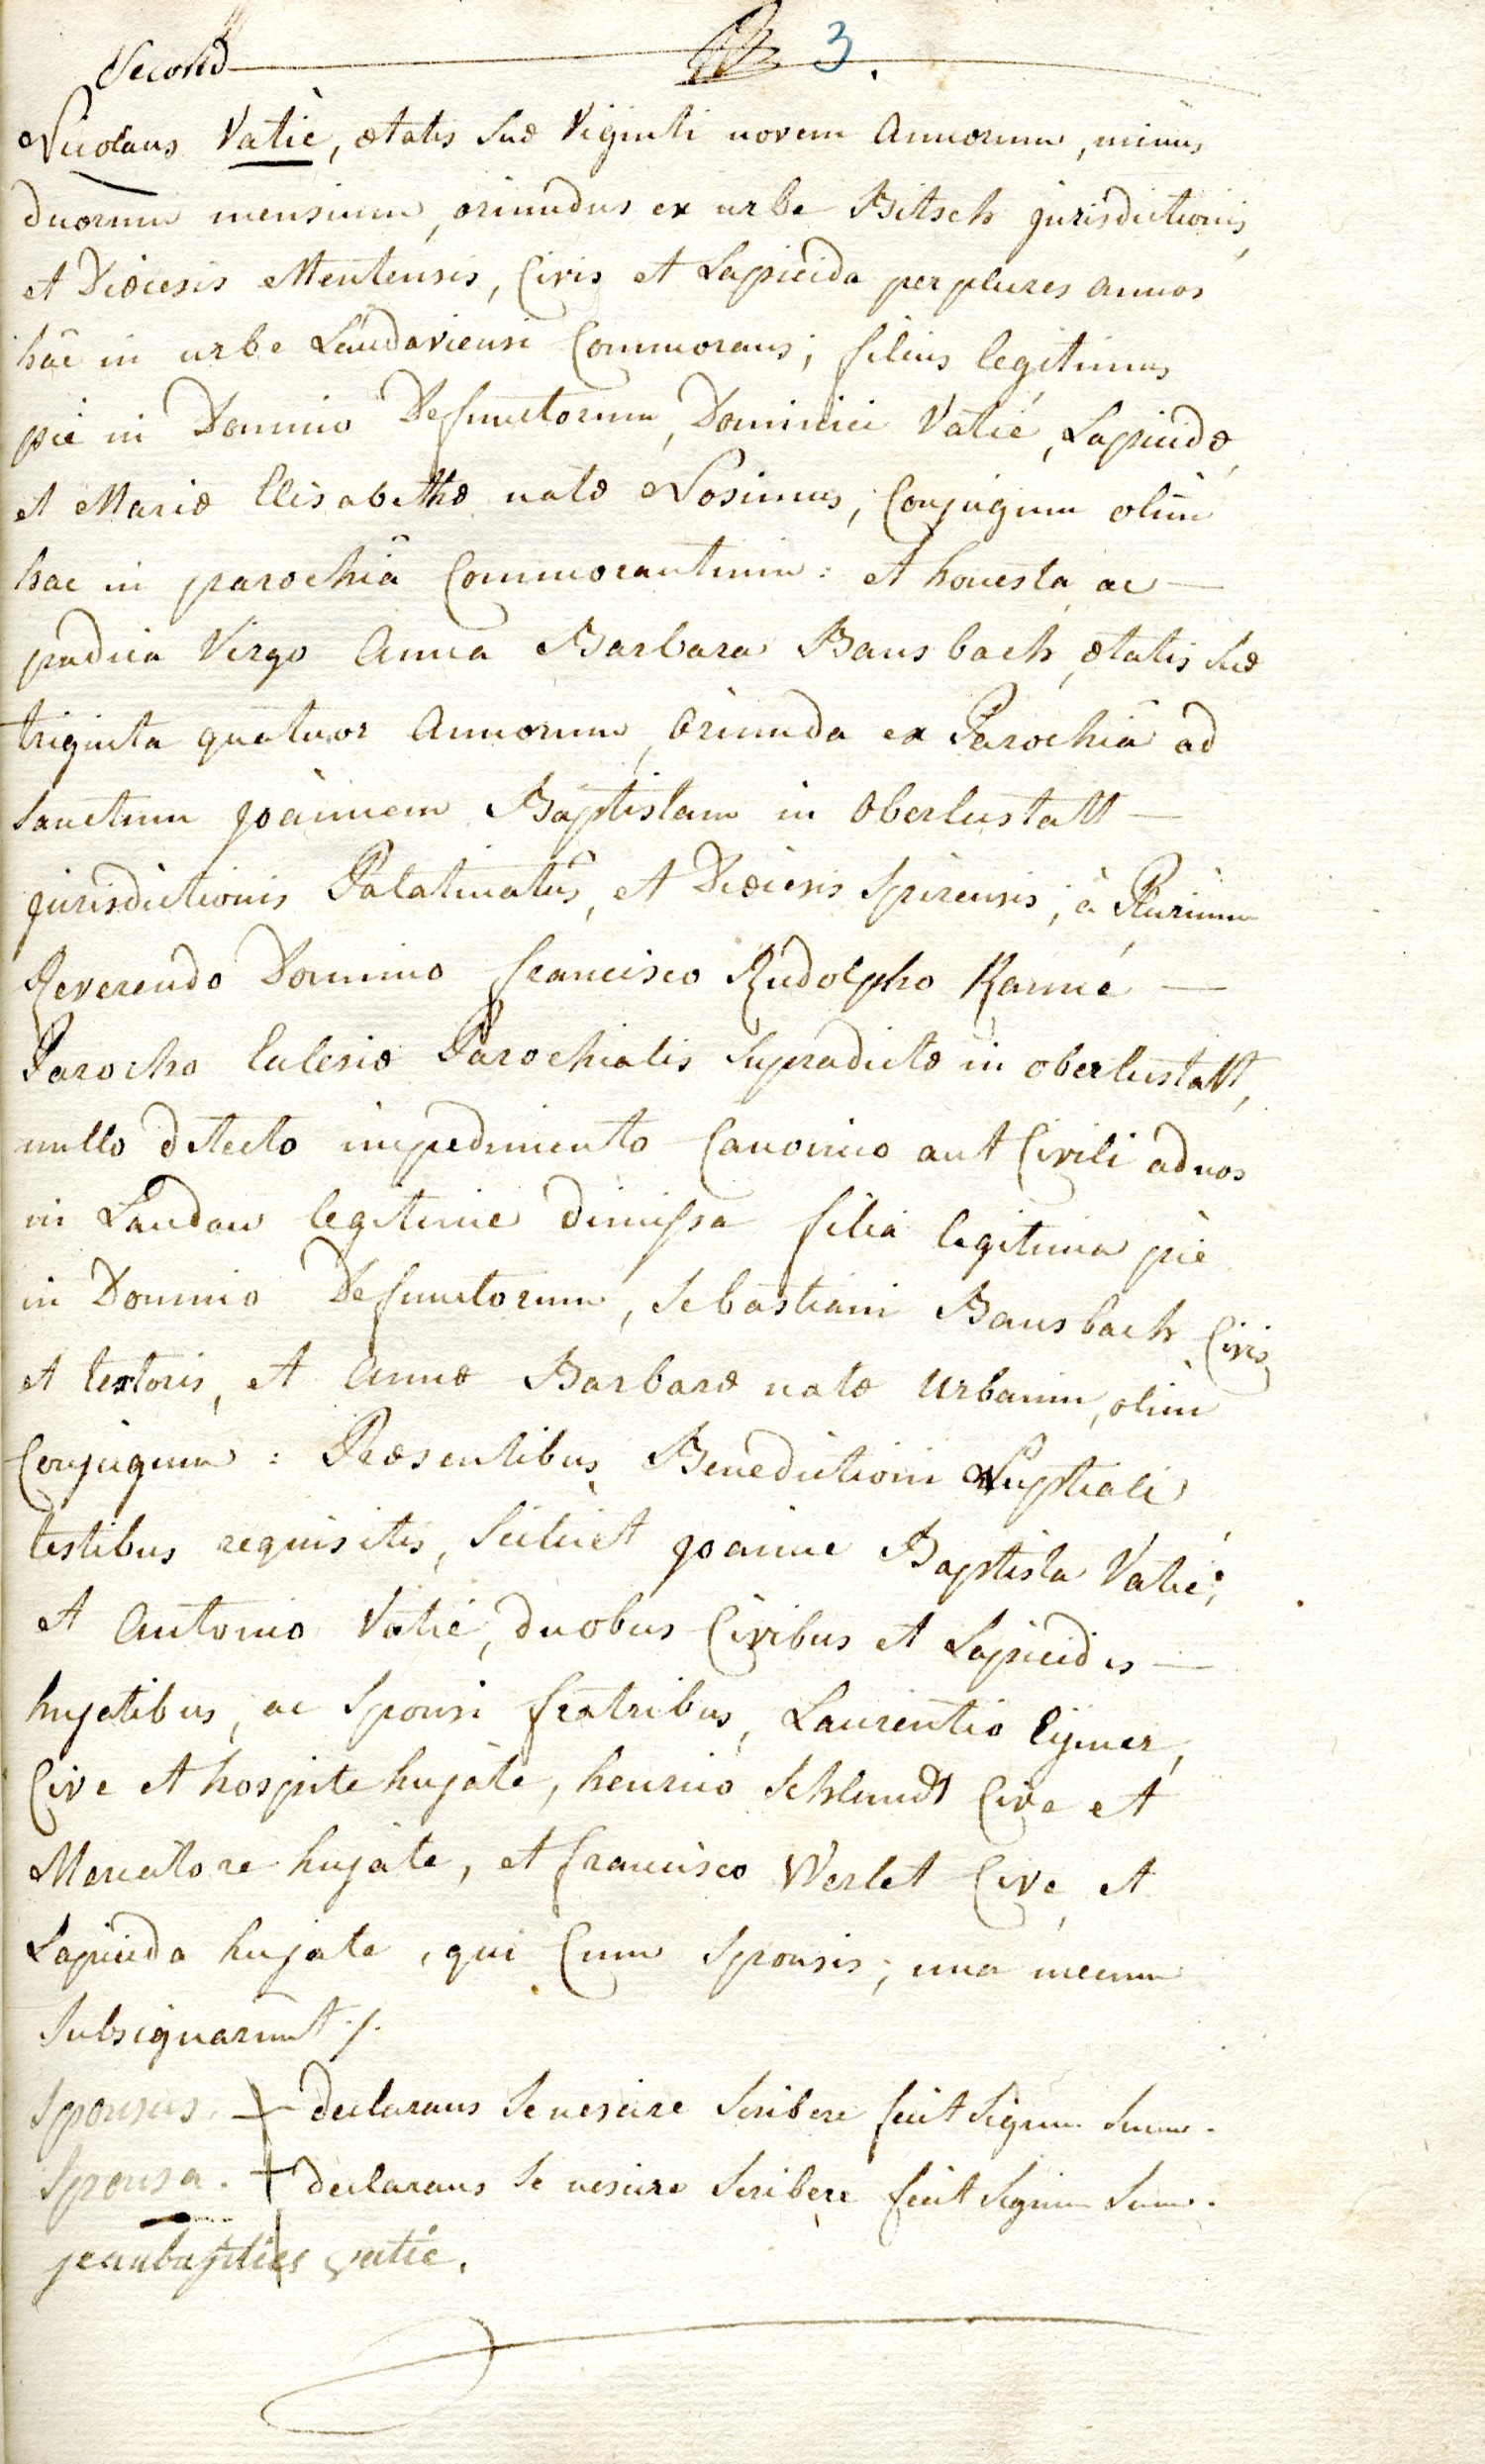 Second 3.
Nicolaus Vatiè, ætatis suæ viginti novem annorum, minùs
duorum mensium, oriundus ex urbe Bitsch jurisdictionis,
et Diœcesis Metensis, Civis et Lapicida per plures annos
hâc in urbe Landaviensi Commorans; filius legitimus
piè in Domino Defunctorum, Dominici Vatié, Lapicidæ,
et Mariæ Elisabethæ natæ Nosimus, Conjugum olim
hac in parochiâ Commorantium: et honesta ac
pudica Virgo Anna Barbara Bausbach, ætatis suæ
triginta quatuor Annorum, oriunda ex Parochiâ ad
Sanctum Joannem Baptistam in Oberlustatt
jurisdictionis Palatinatûs, et Diœcesis Spirensis, à Plurimum
Reverendo Domino francisco Rudolpho Kanné
Parocho Eclesiæ Parochialis Supradictæ in oberlustatt,
nullo dtecto impedimento Canonico aut Civili ad nos
in Landau legitime dimissa filia legitima piè
in Domino Defunctorum, Sebastiani Bausbach Civis
et textoris, et Annæ Barbaræ natæ Urbanin, olim
Conjugum: Præsentibus Benedictioni Nuptiali
testibus requisitis, Scilicet Joanne Baptista Vatié,
et Antonio Vatié, duobus Civibus et Lapicidis
hujatibus, ac Sponsi fratribus, Laurentio Eymer,
Cive et hospite hujate, henrico Schlundt Cive et
Mercatore hujate, et francisco Werlet Cive et
Lapicida hujate, qui Cum Sponsis, una mecum
Subsignarunt ./.
Sponsus. + declarans Se nescire Scribere fecit Signum Suum.
Sponsa. + declarans Se nescire Scribere fecit Signum Suum.
jean batistes vatié.